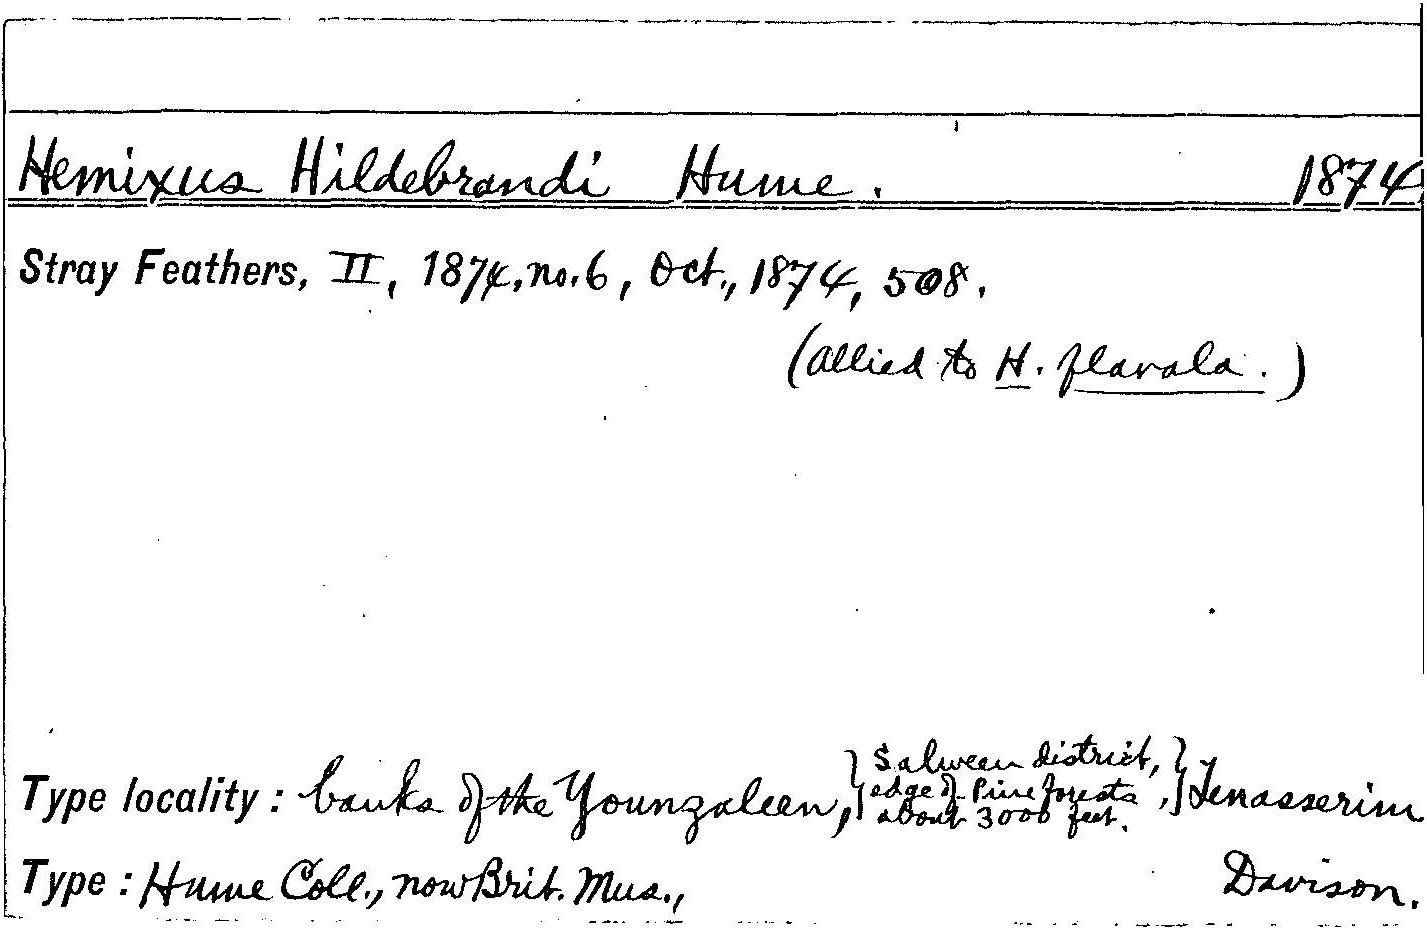 Hemixus Hildebrandi Hume. 1874
Stray Feathers, II, 1874, no. 6, Oct., 1874, 508.
(allied to H. flavala.)
Type locality: banks of the Younzaleen, } Salween district, } Tenasserim
edge of Pine forests,
about 3000 feet.
Type: Hume Coll., now Brit. Mus., Davison.